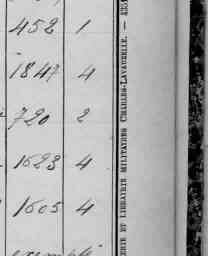 452 1
1847 4
720 2
1623 4
1605 4
ERIE ET LIBRAIRIE MILITAIRES CHARLES-LAVAUZELLE. — 4351